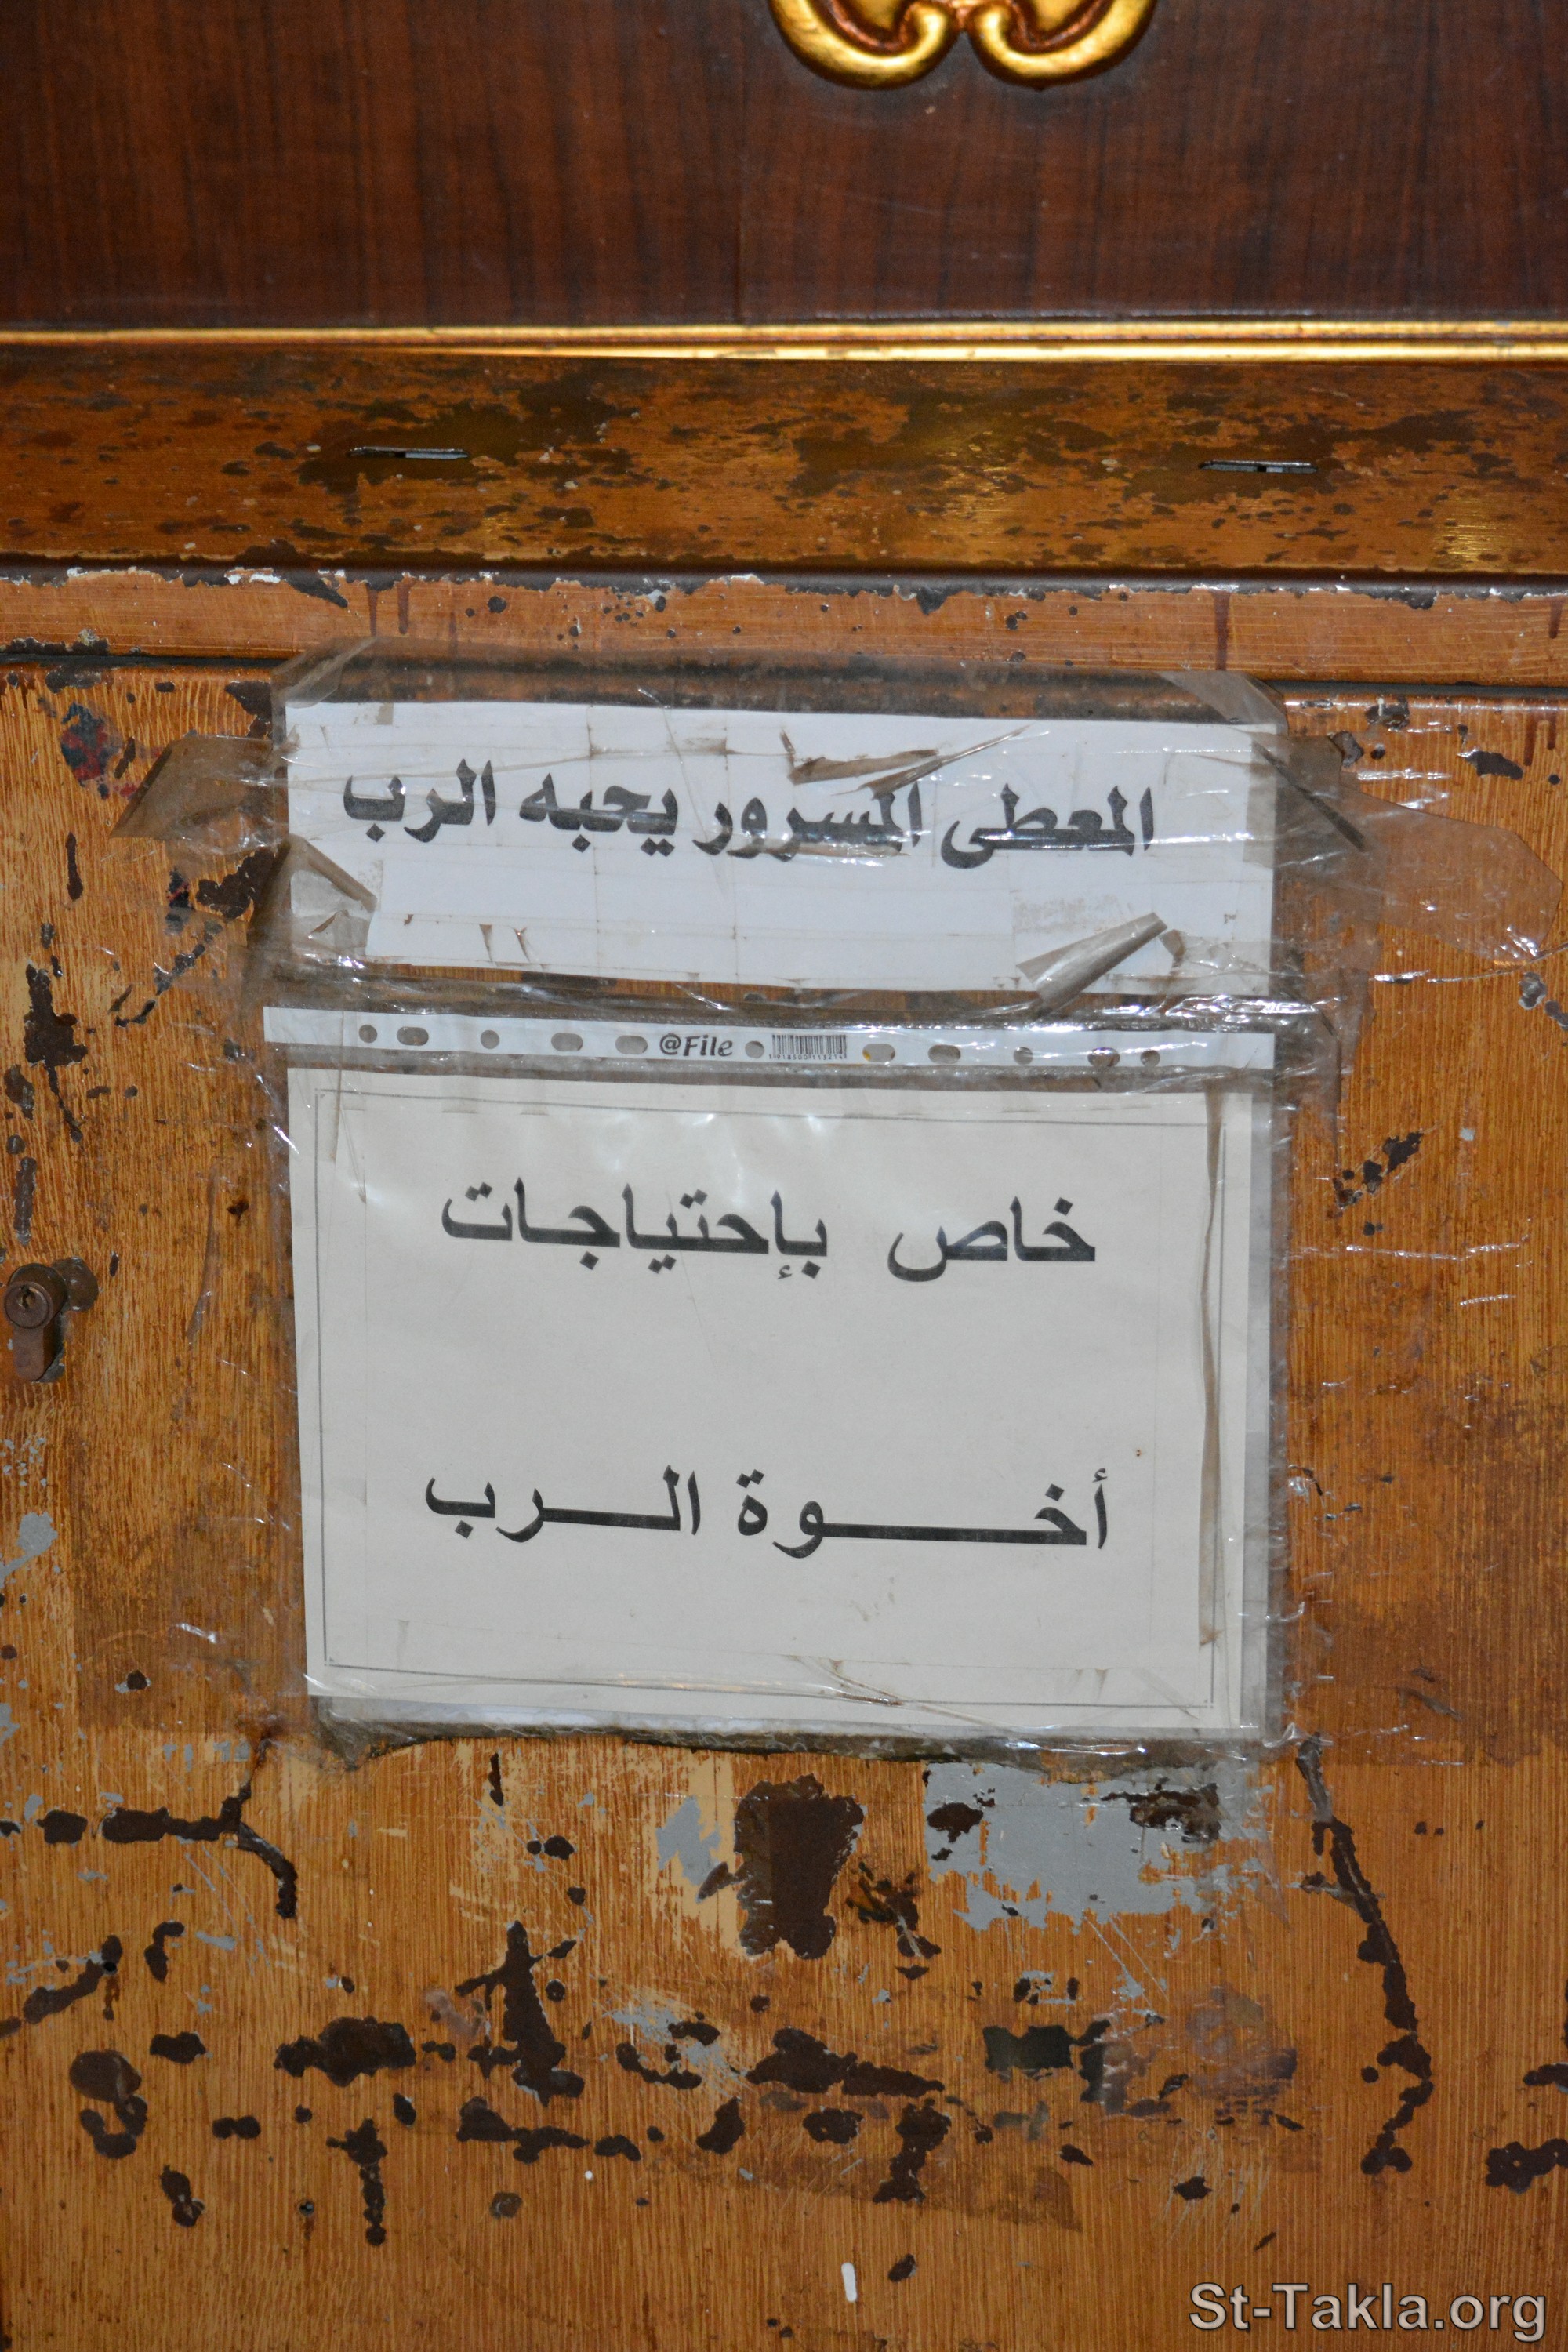 المعطى المسرور يحبه الرب
@File
خاص بإحتياجات
أخوة الرب
St-Takla.org